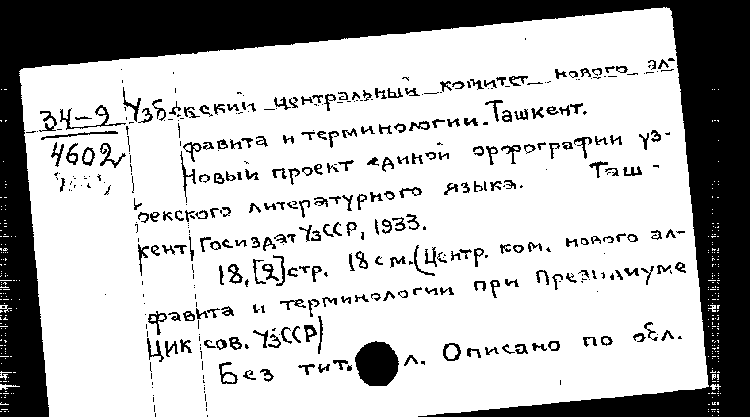 34-9 Узбекский центральный комитет нового ал-
4602 фавита и терминологии. Ташкент.
Новый проект единой орфографии уз-
бекского литературного языка. Таш-
кент, Госиздат УзССР, 1933.
18, [2] стр. 18 см. (Центр. ком. нового ал-
фавита и терминологии при Президиуме
ЦИК сов. УзССР)
Без тит. л. Описано по обл.